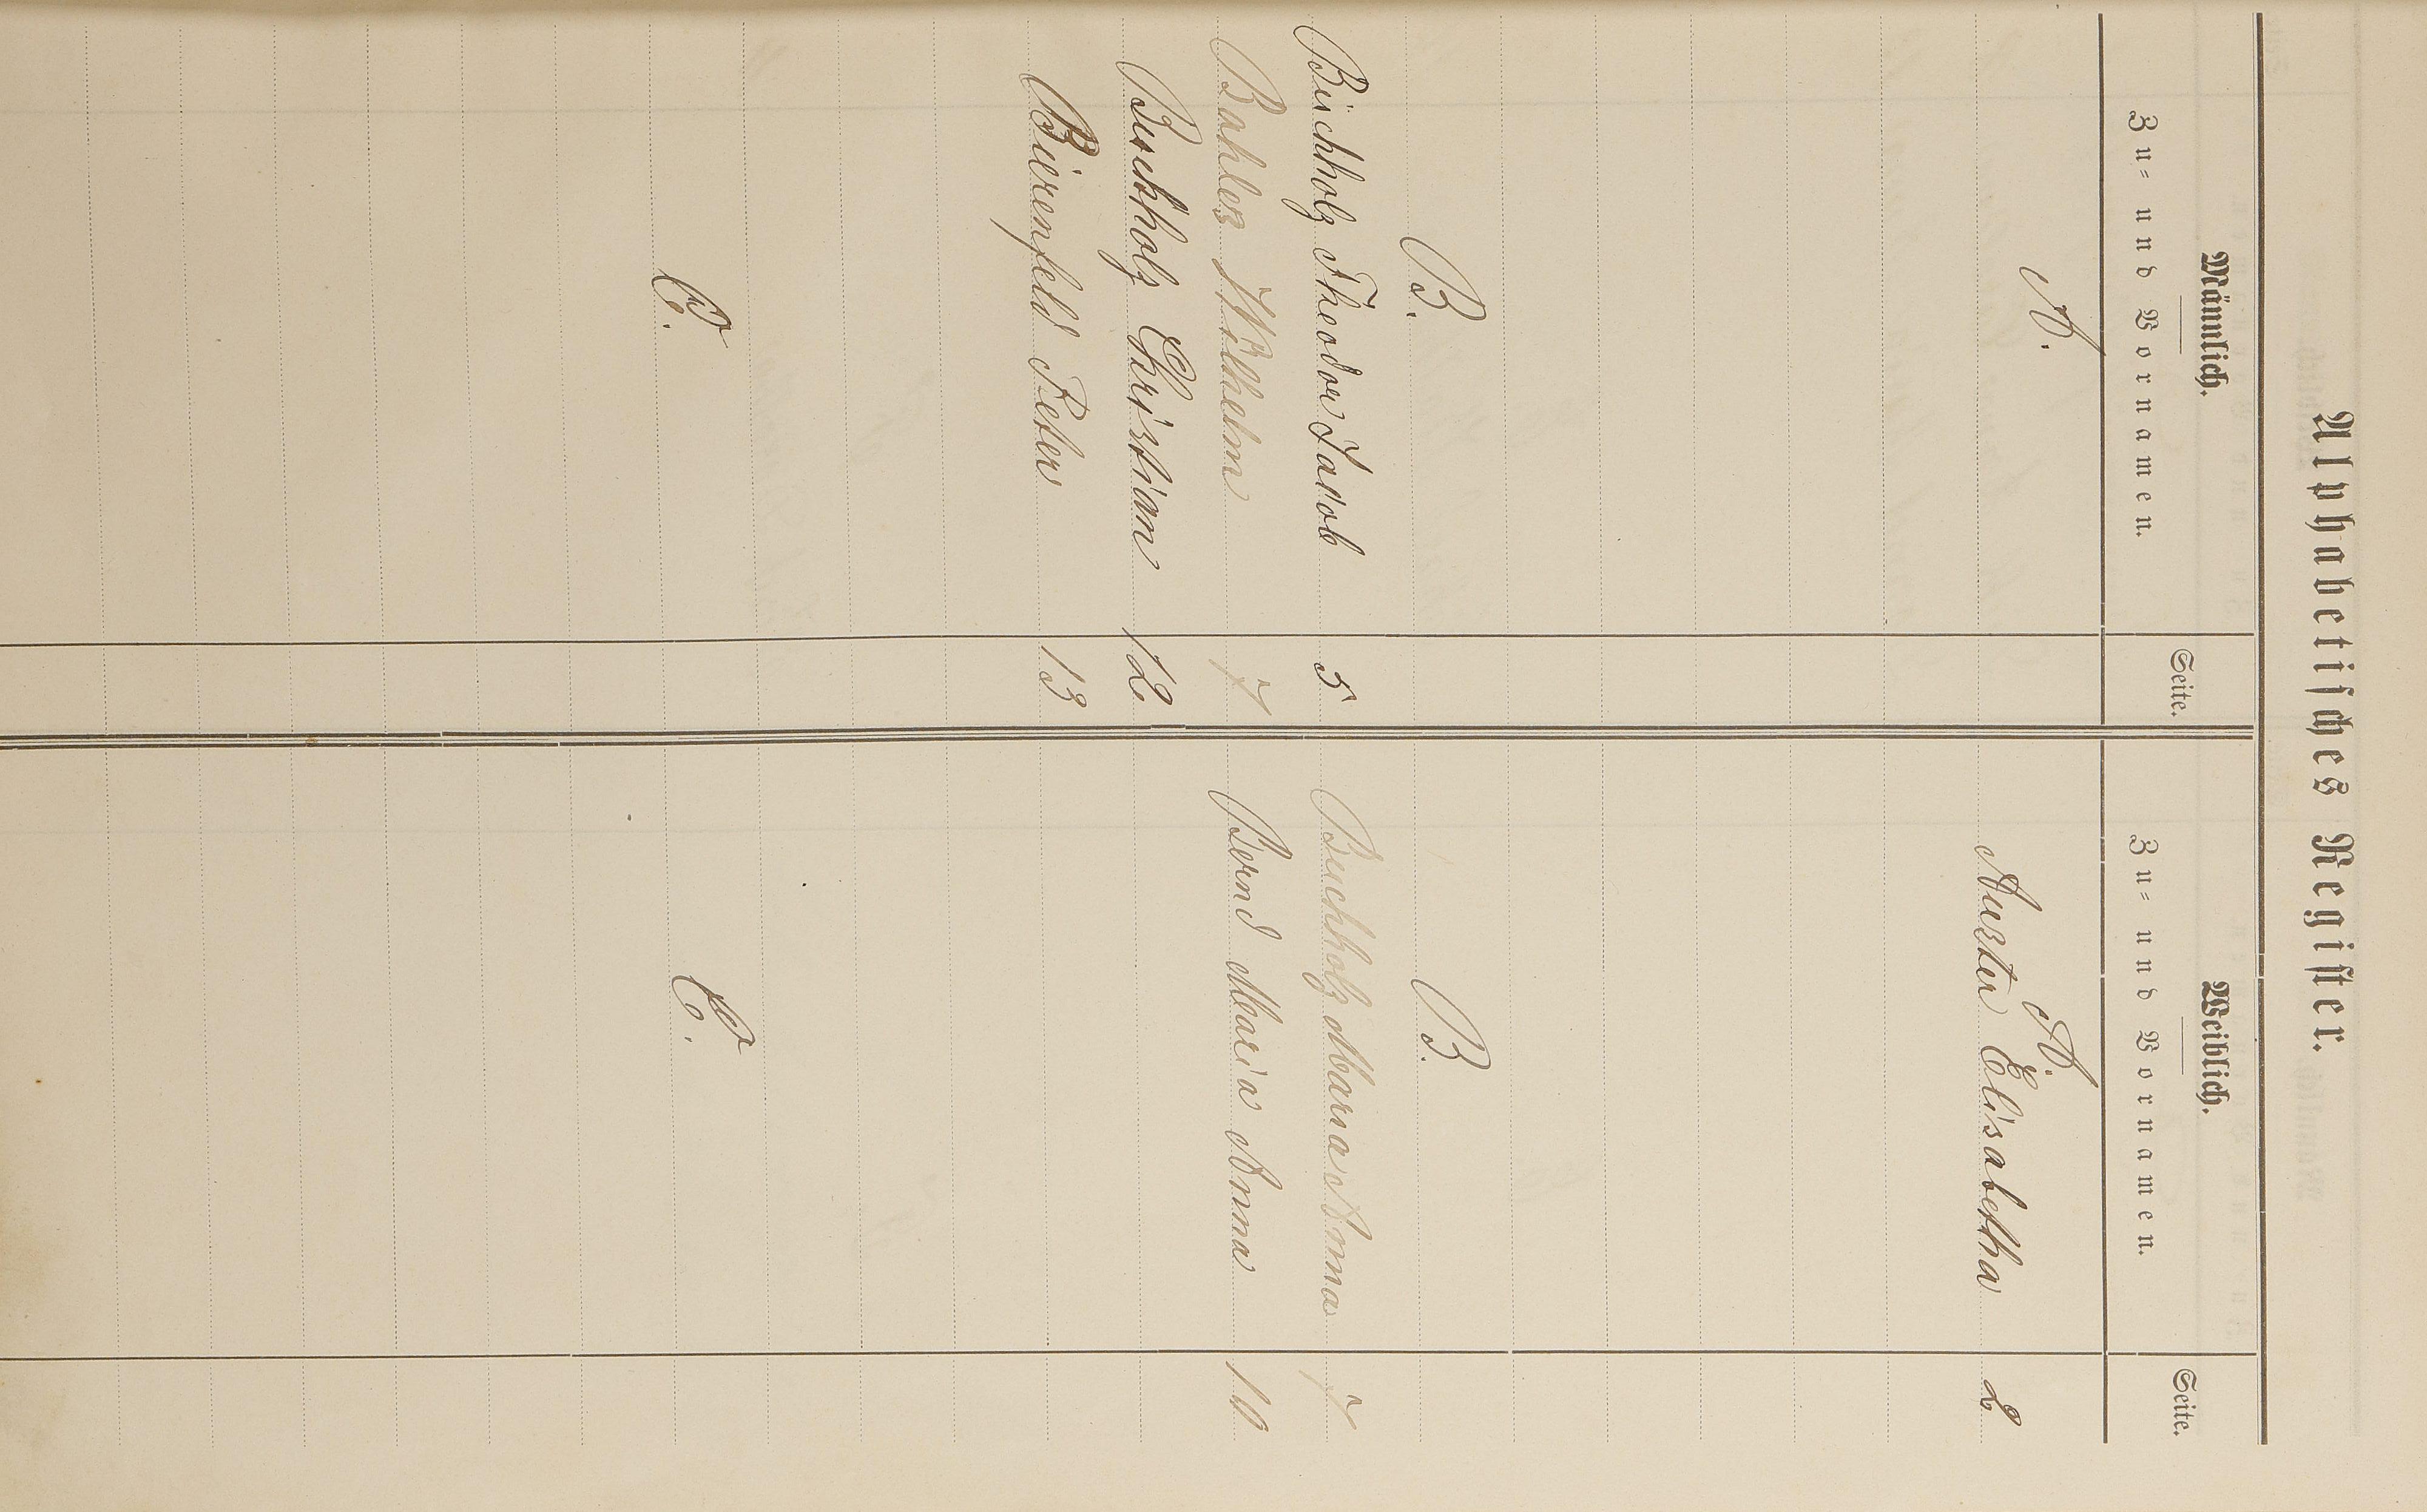 Alphabetisches Register.
Männlich.
Zu- und Vornamen.
Seite.
Weiblich.
Zu- und Vornamen.
Seite.
A.
A.
Auster Elisabetha 2
B.
B.
Buchholz Theodor Jacob 5
Buchholz Maria Anna 7
Bahles Wilhelm 7
Bernd Maria Anna 10
Buchholz Christian 12
Bürenfeld Peter 13
C.
C.